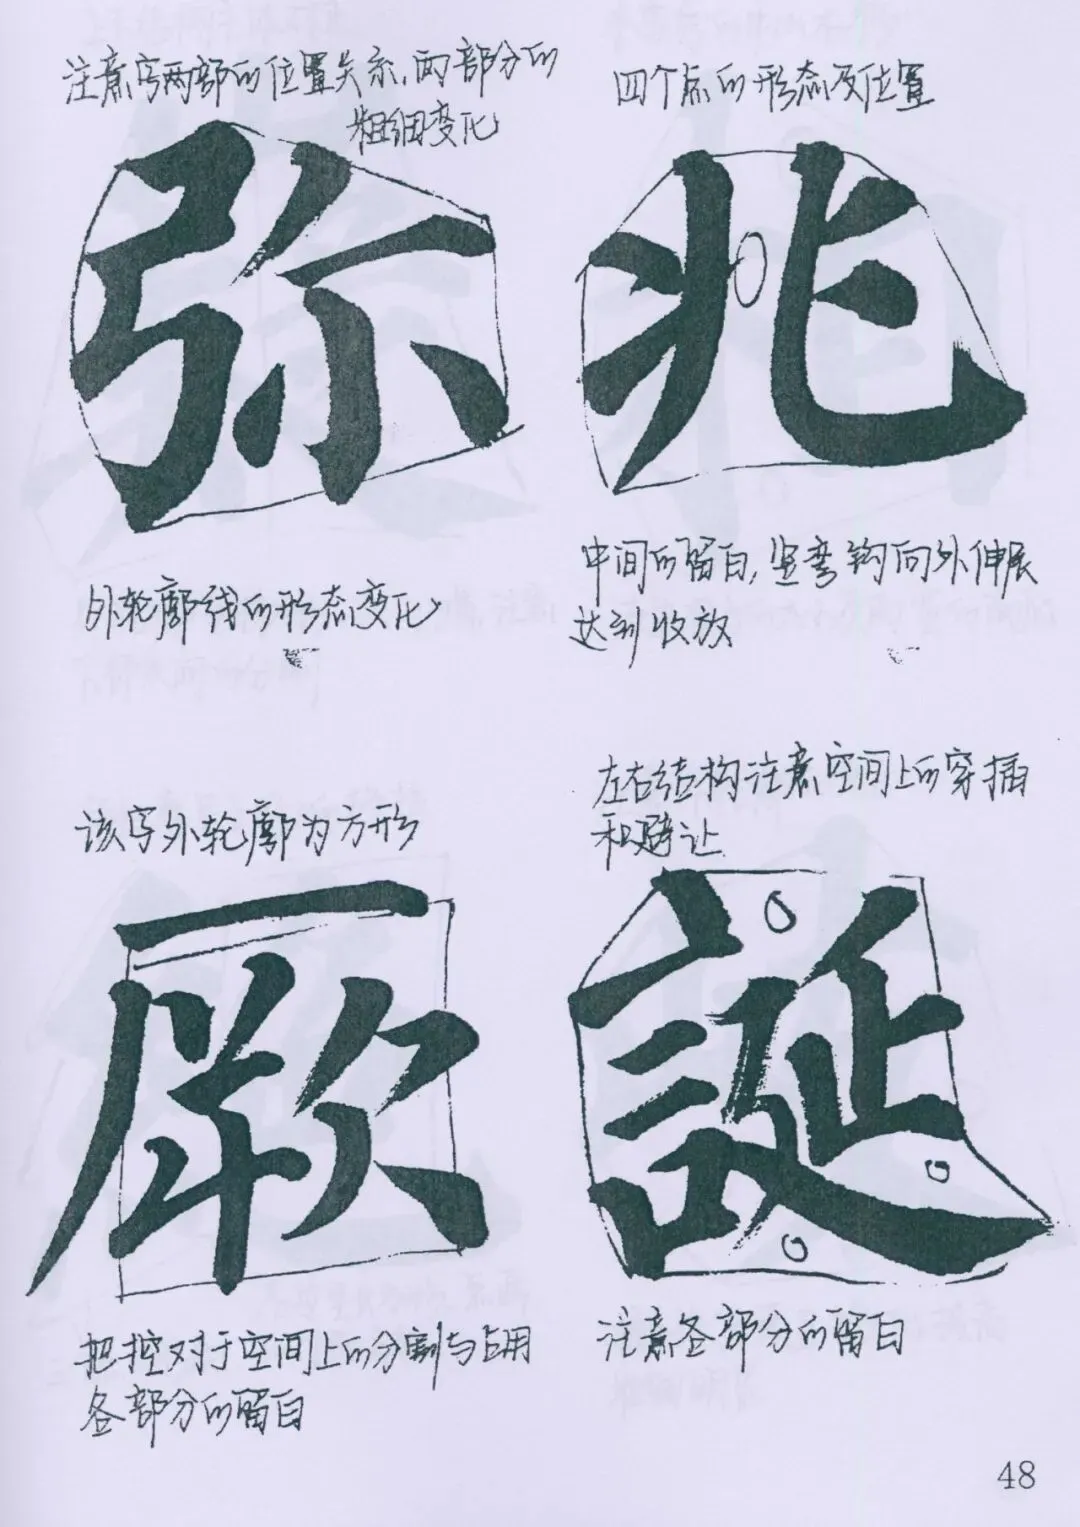 注意字两部的位置关系,两部分的
粗细变化
弥
外轮廓线的形态变化
四个点的形态及位置
兆
中间的留白,竖弯钩向外伸展
达到收放
该字外轮廓为方形
厥
把控对于空间上的分割与占用
各部分的留白
左右结构注意空间上的穿插
和避让
誕
注意各部分的留白
48